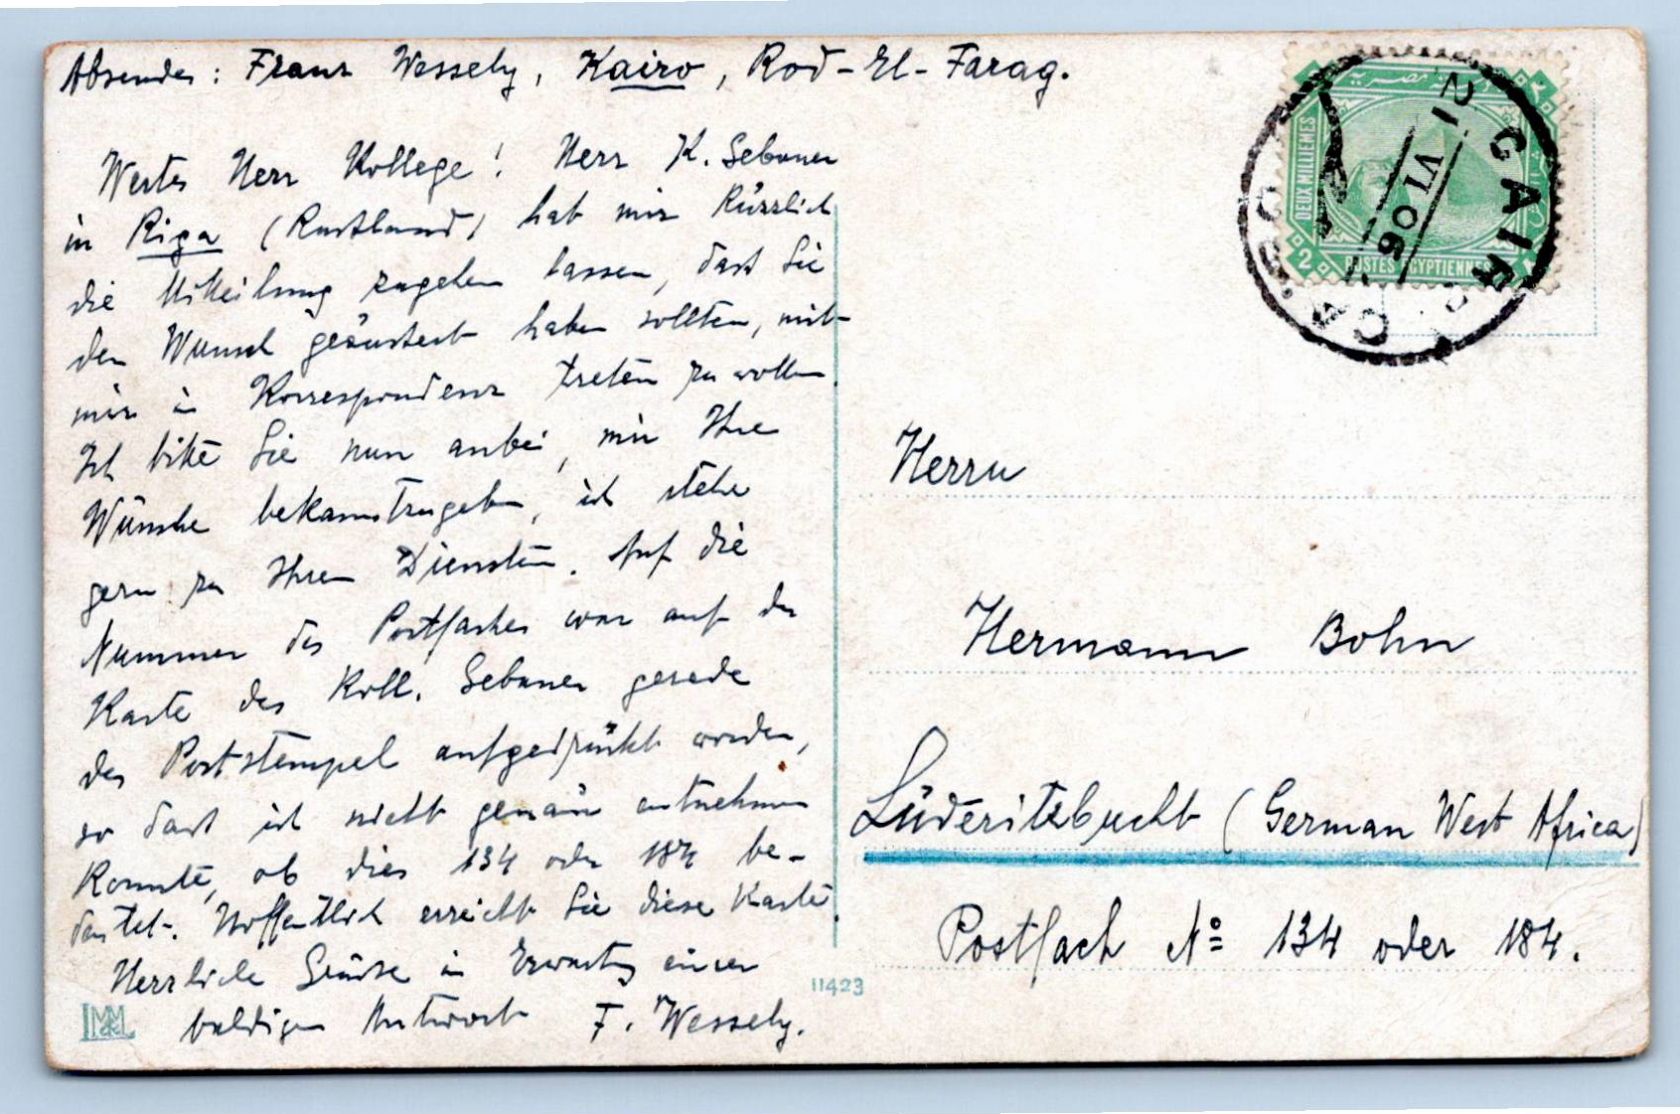 Absender: Franz Wessely, Kairo, Rod-El-Farag.
Wertes Herr Kollege! Herr K. Sebaner
in Riga (Russland) hat mir kürzlich
die Mitteilung zugehen lassen, dass Sie
den Wunsch geäussert haben sollten, mit
mir in Korrespondenz treten zu wollen.
Ich bitte Sie nun anbei, mir Ihre
Wünsche bekanntzugeben, ich stehe
gern zu Ihren Diensten. Auf die
Nummer des Postfaches war auf der
Karte des Koll. Sebaner gerade
der Poststempel aufgedrückt worden,
so dass ich nicht genau entnehmen
konnte, ob dies 134 oder 184 be-
deutet. Hoffentlich erreicht Sie diese Karte.
Herzliche Grüsse in Erwartung einer
baldigen Antwort F. Wessely.
LMM
11423
DEUX MILLIEMES
POSTES EGYPTIENNES
2
CAIRO
21 VI 06
CAIRO
Herrn
Hermann Bohn
Lüderitzbucht (German West Africa)
Postfach No 134 oder 184.